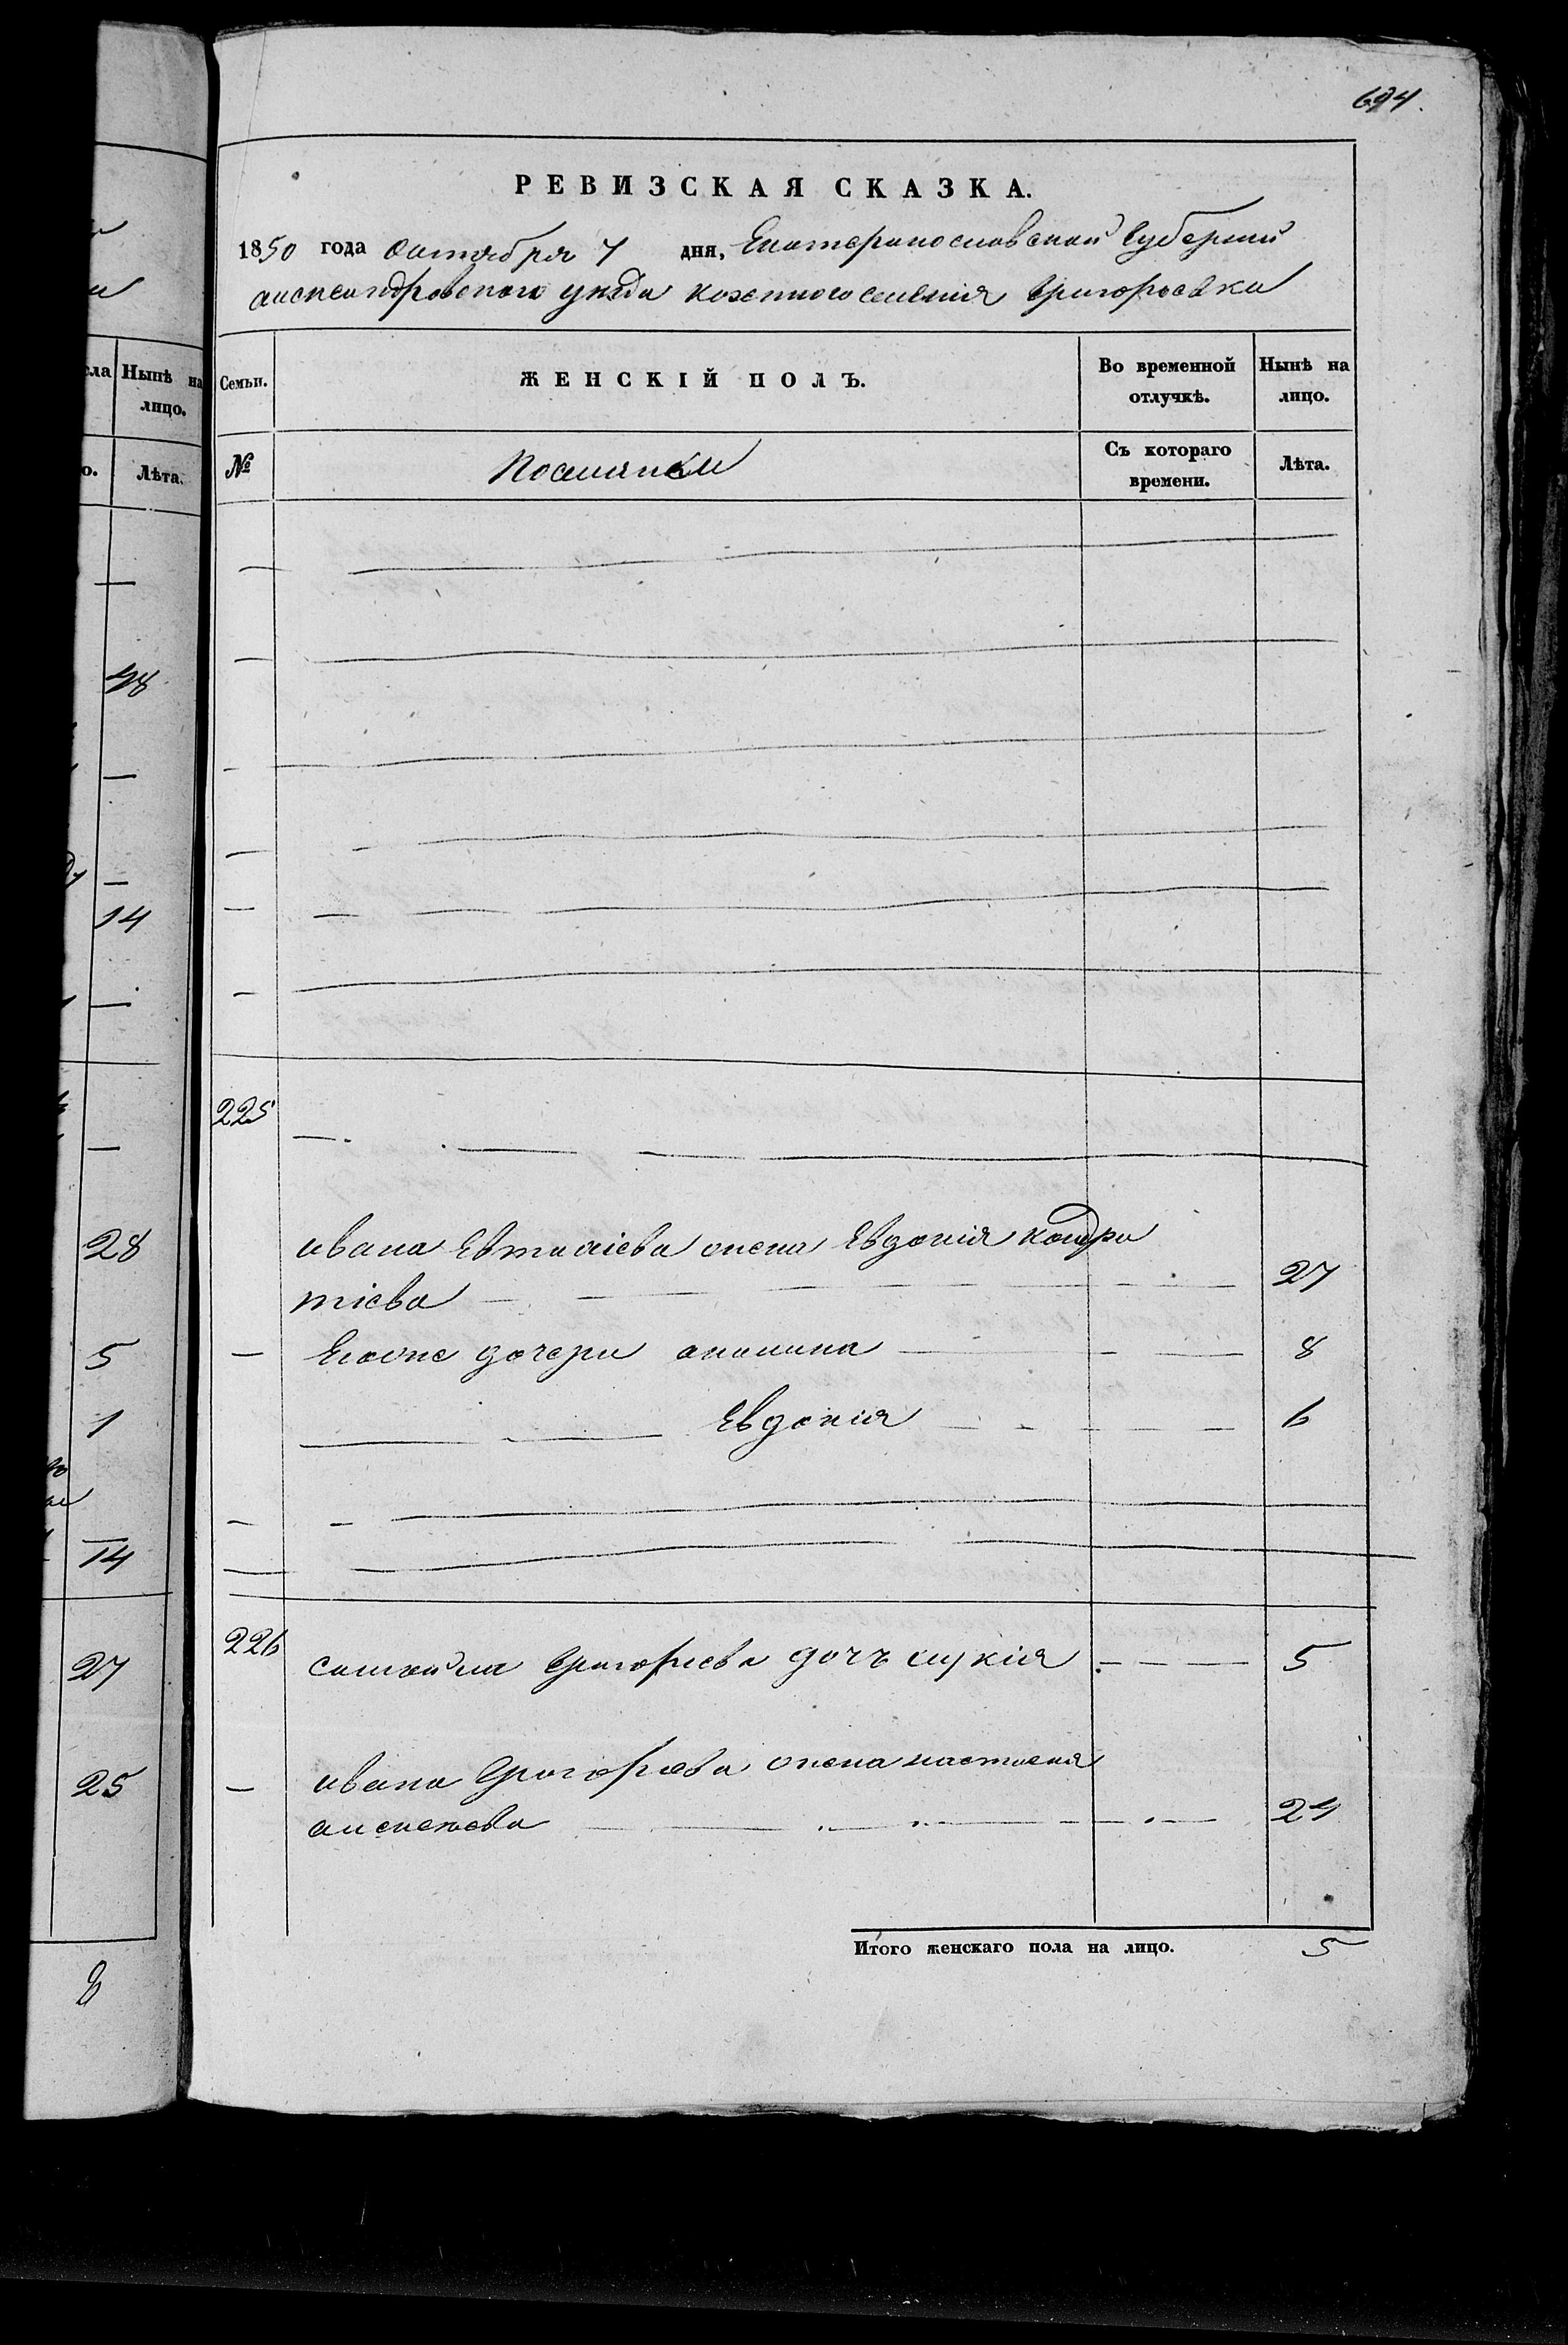 694.
РЕВИЗСКАЯ СКАЗКА.
1850 года октября 7 дня, Екатеринославской Губернии
александровского уезда козенного селения Григоровка
Семьи. ЖЕНСКІЙ ПОЛЪ. Во временной отлучкѣ. Нынѣ на лицо.
№ Поселянки Съ котораго времени. Лѣта.
225
ивана Евтихіева жена Евдокія кондра
тіева 27
Еговые дочери акилина 8
Евдокия 6
226 самойла Григориева дочъ лукія 5
ивана Григориева жена настасия
алексеева 24
Итого женскаго пола на лицо. 5
Нынѣ на
лицо.
Лѣта.
48
14
28
5
1
14
27
25
8